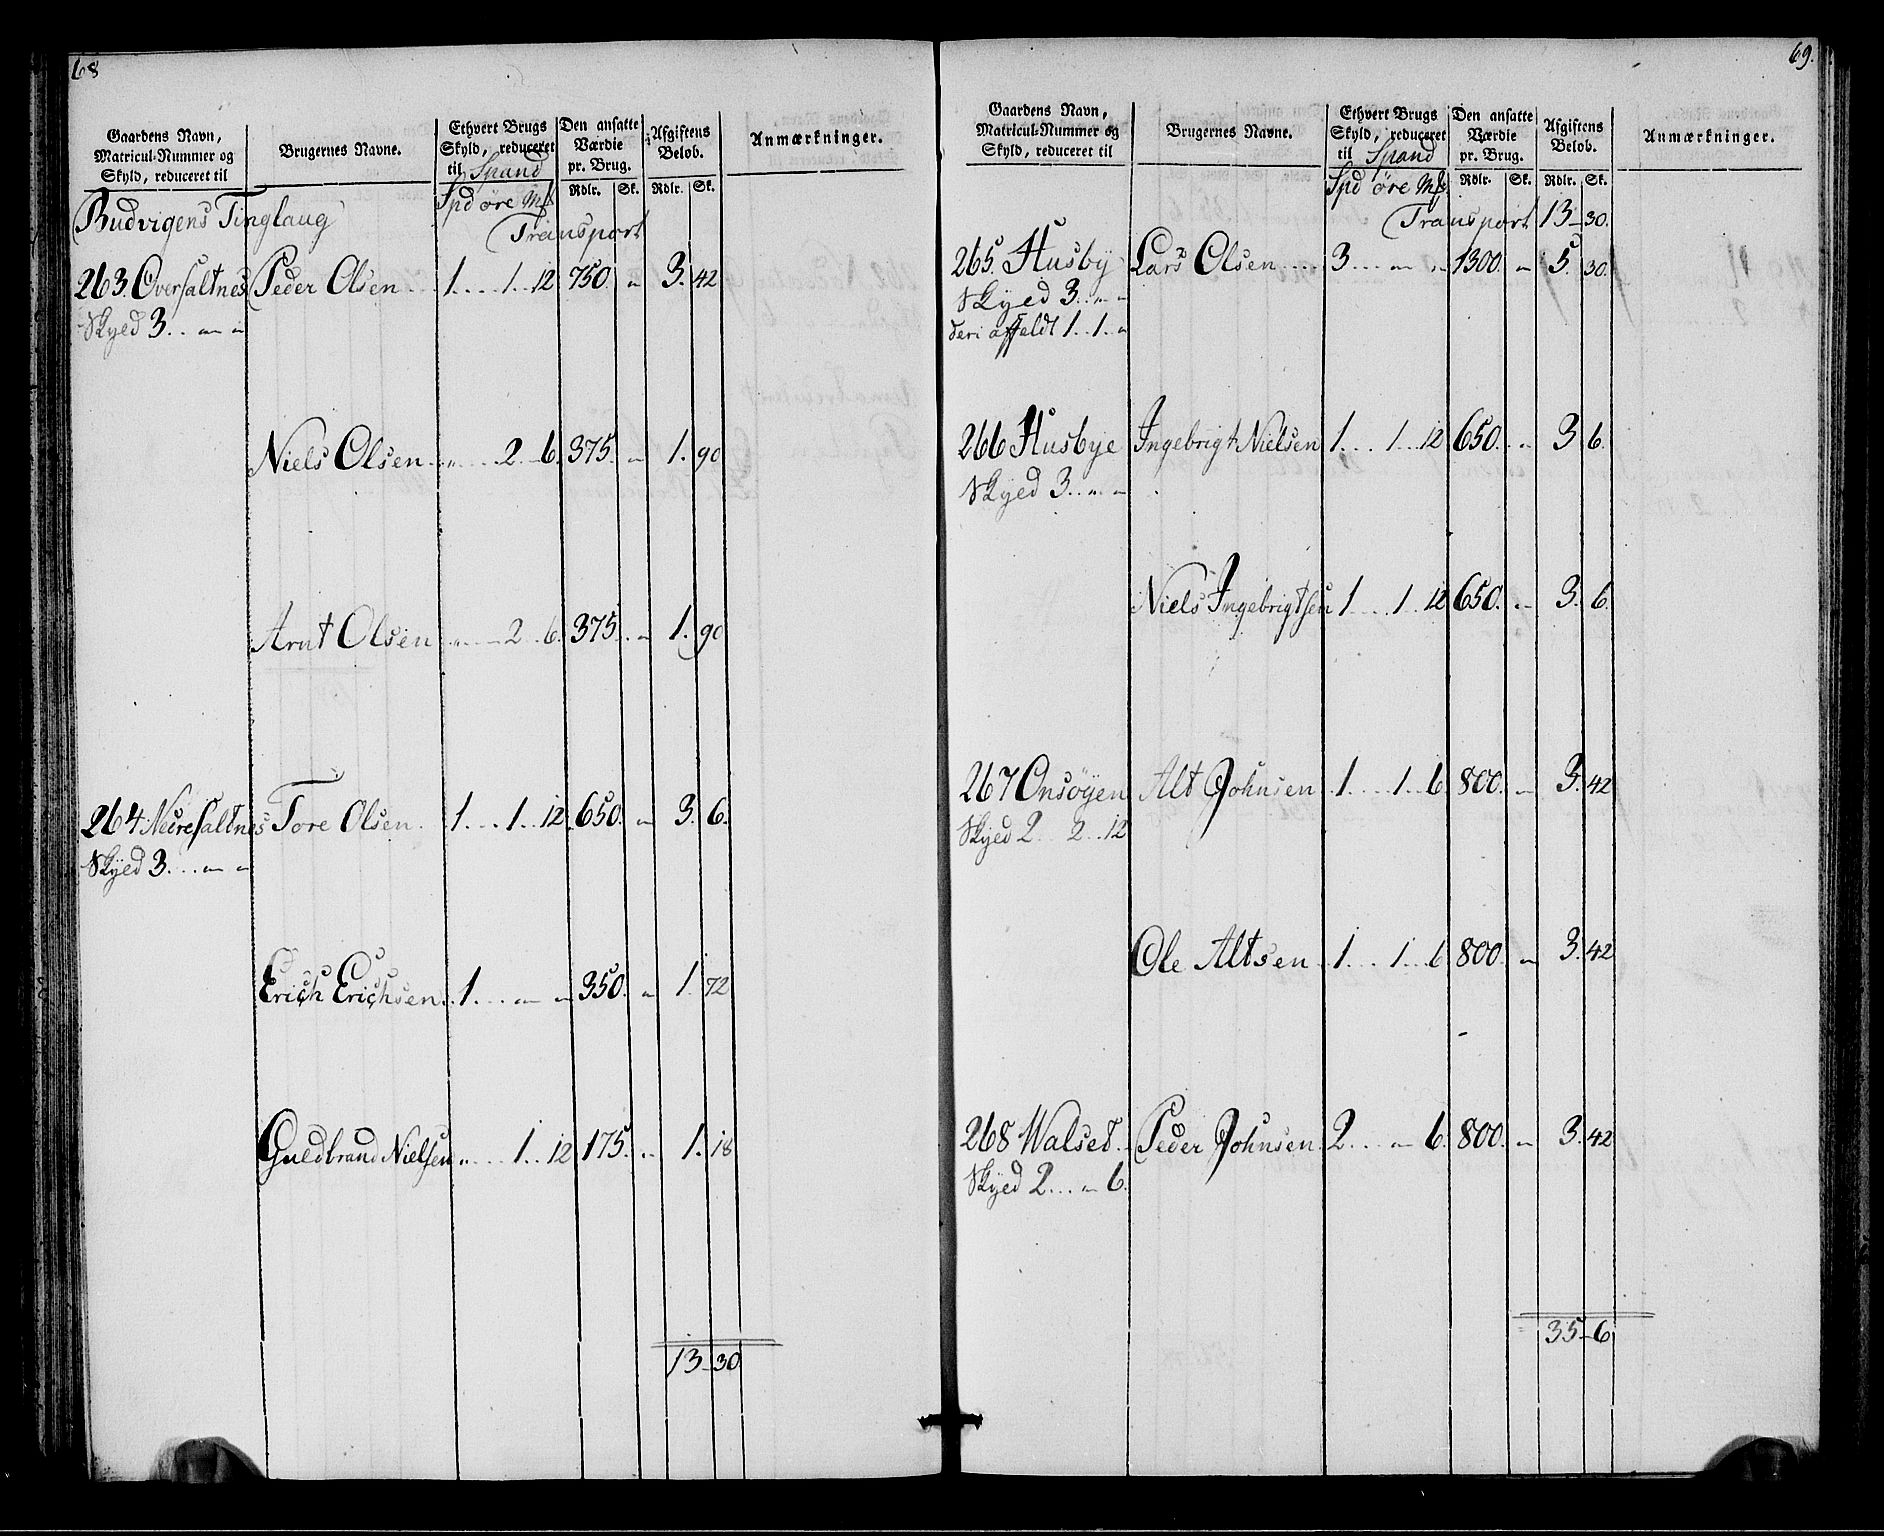 68
Gaardens Navn, Matricul-Nummer og Skyld, reduceret til
Brugernes Navne.
Ethvert Brugs Skyld, reduceret til Spand
Den ansatte Værdie pr. Brug.
Afgiftens Beløb.
Anmærkninger.
Spd øre Mk
Rdlr. Sk. Rdlr. Sk.
Budvigens Tinglaug
Transport
263. Oversaltnes Peder Olsen 1....1..12 750. " 3. 42
Skyed 3... " "
Niels Olsen " ....2..6. 375. " 1. 90
Arnt Olsen " ...2..6. 375. " 1. 90
264 Nedresaltnes Tore Olsen 1....1..12 650. " 3. 6.
Skyed 3.... " "
Erich Erichsen 1.... " " 350. " 1. 72
Guldbrand Nielsen " ....1..12 175. " 1. 18
13-30
69.
Gaardens Navn, Matricul-Nummer og Skyld, reduceret til
Brugernes Navne.
Ethvert Brugs Skyld, reduceret til Spand
Den ansatte Værdie pr. Brug.
Afgiftens Beløb.
Anmærkninger.
Spd øre Mk
Rdlr. Sk. Rdlr. Sk.
Transport 13-30.
265. Husby Lars Olsen 3.... " " 1300. " 5. 30.
Skyed 3.. " "
deri affeldt 1..1.. "
266 Husbye Ingebrigt Nielsen 1....1..12 650. " 3 6.
Skyed 3.. " "
Niels Ingebrigtsen 1....1..12 650. " 3. 6.
267 Onsøyen Alt Johnsen 1....1..6 800. " 3. 42
Skyed 2...2..12
Ole Altsen 1....1..6 800. " 3. 42
268 Walset Peder Johnsen 2.... " 6. 800. " 3. 42
Skyed 2... " 6.
35-6